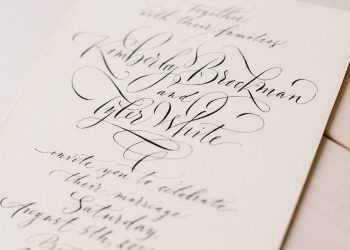 together
with their families
Kimberly Brockman
and
Tyler White
invite you to celebrate
their marriage
Saturday
August 5th,